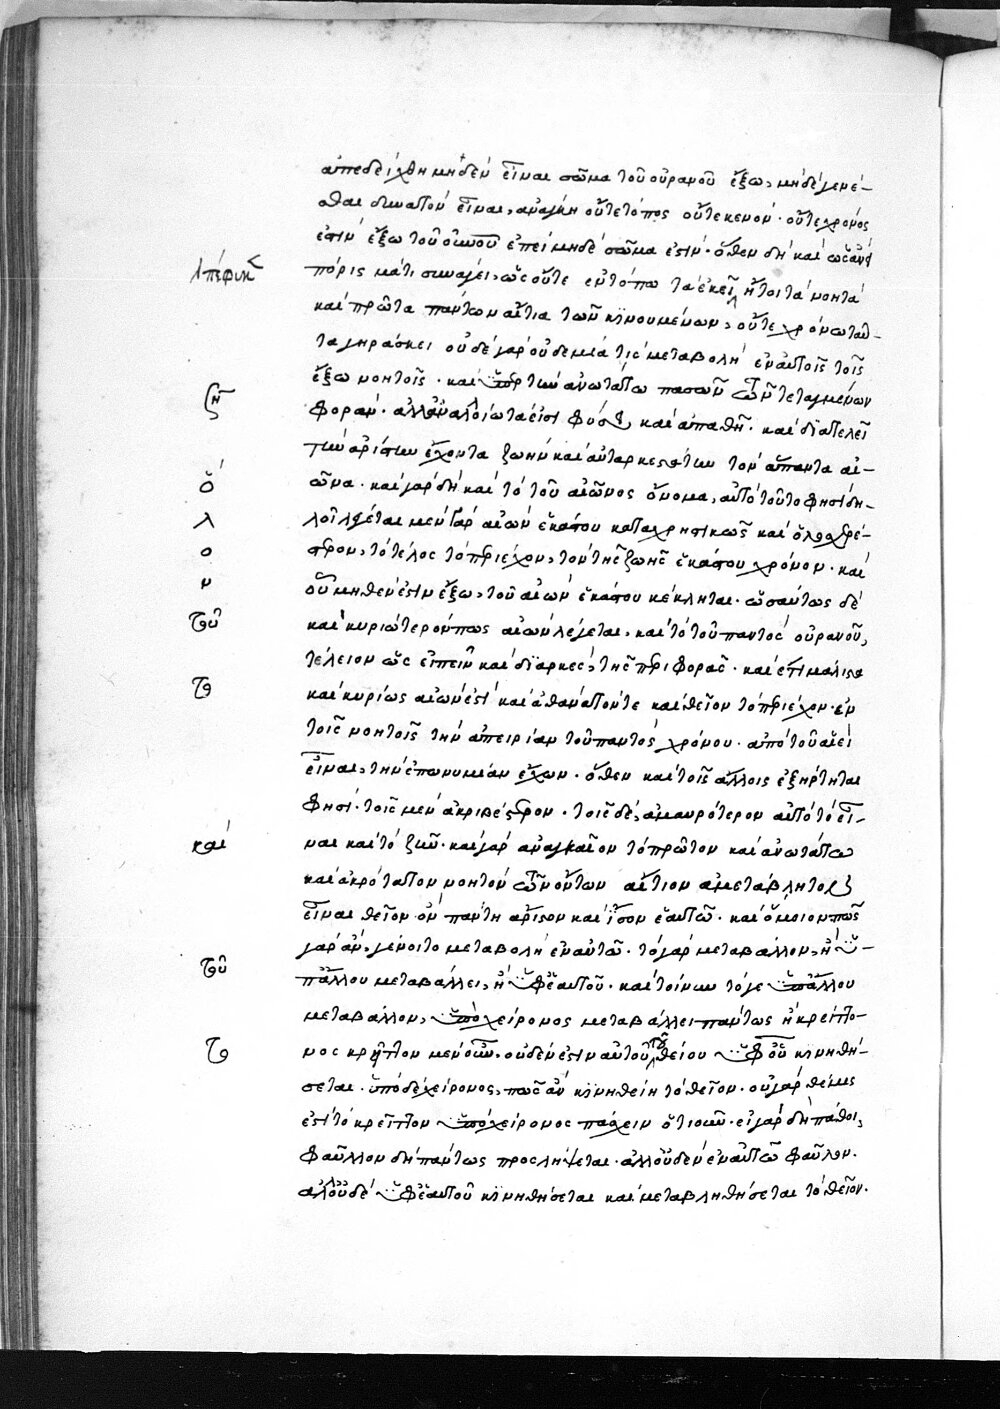 ἀπεδείχθη μηδὲν εἶναι σῶμα τοῦ οὐρανοῦ ἔξω, μηδὲ γενέ-
σθαι δυνατὸν εἶναι, ἀνάγκη οὔτε τόπος οὔτε κενὸν· οὔτε χρόνος
ἐστὶν ἔξω τοῦ οὐρανοῦ ἐπεὶ μηδὲ σῶμα ἐστίν· ὅθεν δὴ καὶ ὡσανεὶ
πέφυκε
πόρισμά τι συνάγει, ὡς οὔτε ἐν τόπῳ τὰ ἐκεῖ ἤτοι τὰ νοητὰ
καὶ πρῶτα πάντων αἴτια τῶν κινουμένων, οὔτε χρόνος αὐ-
τὰ γηράσκει οὐδὲ γὰρ οὐδεμία τις μεταβολὴ ἐν αὐτοῖς τοῖς
ἔξω νοητοῖς· καὶ ὑπὲρ τὴν ἀνωτάτω πασῶν ὧν τεταγμένων
ζῆ
φορὰν· ἀλλ' ἀναλλοίωτα εἰσὶ φύσει, καὶ ἀπαθῆ· καὶ διατελεῖ
τὴν ἀρίστην ἔχοντα ζωὴν καὶ αὐταρκεστάτην τὸν ἅπαντα αἰ-
ὅ
ῶνα· καὶ γὰρ δὴ καὶ τὸ τοῦ αἰῶνος ὄνομα, αὐτὸ τοῦτο φησὶ δη-
λ
λοῖ λέγεται μὲν γὰρ αἰὼν ἑκάστου καταχρηστικῶς καὶ ὁλοσχερέ-
ο
στερον, τὸ τέλος τὸ περιέχον, τὸν τῆς ζωῆς ἑκάστου χρόνον· καὶ
ν
οὗ μηθὲν ἐστιν ἔξω, τοῦ αἰὼν ἑκάστου κέκληται· ὡσαύτως δὲ
τοῦ
καὶ κυριώτερόν πως αἰὼν λέγεται, καὶ τὸ τοῦ παντὸς οὐρανοῦ,
τέλειον ὡς εἰπεῖν καὶ διαρκὲς, τῆς περιφορᾶς· καὶ ἔτι μάλιστα
το
καὶ κυρίως αἰὼν ἐστὶ καὶ ἀθάνατόν τε καὶ θεῖον τὸ περιέχον· ἐν
τοῖς νοητοῖς τὴν ἀπειρίαν τοῦ παντὸς χρόνου· ἀπὸ τοῦ ἀεὶ
εἶναι, τὴν ἐπωνυμίαν ἔχων· ὅθεν καὶ τοῖς ἄλλοις ἐξήρτηται
φησὶ· τοῖς μὲν ἀκριβέστερον· τοῖς δὲ, ἀμαυρότερον αὐτὸ τὸ εἶ-
καὶ
ναι καὶ τὸ ζῆν· καὶ γὰρ ἀναγκαῖον τὸ πρῶτον καὶ ἀνωτάτω
καὶ ἀκρότατον νοητὸν ὧν ὄντων αἴτιον ἀμετάβλητον
εἶναι θεῖον ὂν πάντη ἄριστον καὶ ἴσον ἑαυτῷ· καὶ ὅμοιον πῶς
γὰρ ἂν, γένοιτο μεταβολὴ ἐν αὐτῷ· τὸ γὰρ μεταβάλλον, ἢ ὑ-
τοῦ
π' ἄλλου μεταβάλλει, ἢ ὑφ' ἑαυτοῦ· καὶ τοίνυν τό γε ὑπ' ἄλλου
μεταβάλλον, ὑπὸ χείρονος μεταβάλλει πάντως ἢ κρείττο-
το
νος κρεῖττον μὲν οὖν· οὐδὲν ἐστιν αὐτοῦ τοῦ θείου ὑφ' οὗ κινηθή-
σεται· ὑπὸ δὲ χείρονος, πῶς ἂν κινηθείη τὸ θεῖον· οὐ γὰρ θέμις
ἐστὶ τὸ κρεῖττον ὑπὸ χείρονος πάσχειν ὁτιοῦν· εἰ γὰρ δὴ πάθοι,
φαῦλον δὴ πάντως προσλήψεται· ἀλλ' οὐδὲν ἐν αὐτῷ φαῦλον·
ἀλλ' οὐδὲ ὑφ' ἑαυτοῦ κινηθήσεται καὶ μεταβληθήσεται τὸ θεῖον·